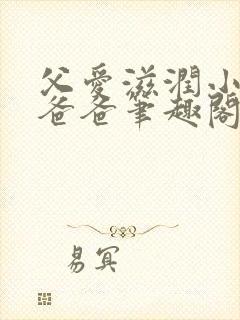 父愛滋潤小
爸爸筆趣閣
易冥